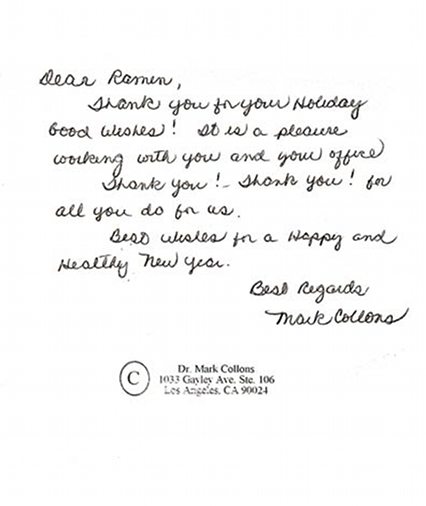 Dear Ramen,
Thank you for your Holiday
Good Wishes! It is a pleasure
working with you and your office
Thank you! - Thank you! for
all you do for us.
Best wishes for a Happy and
Healthy New Year.
Best Regards
Mark Collons
C
Dr. Mark Collons
1033 Gayley Ave. Ste. 106
Los Angeles, CA 90024